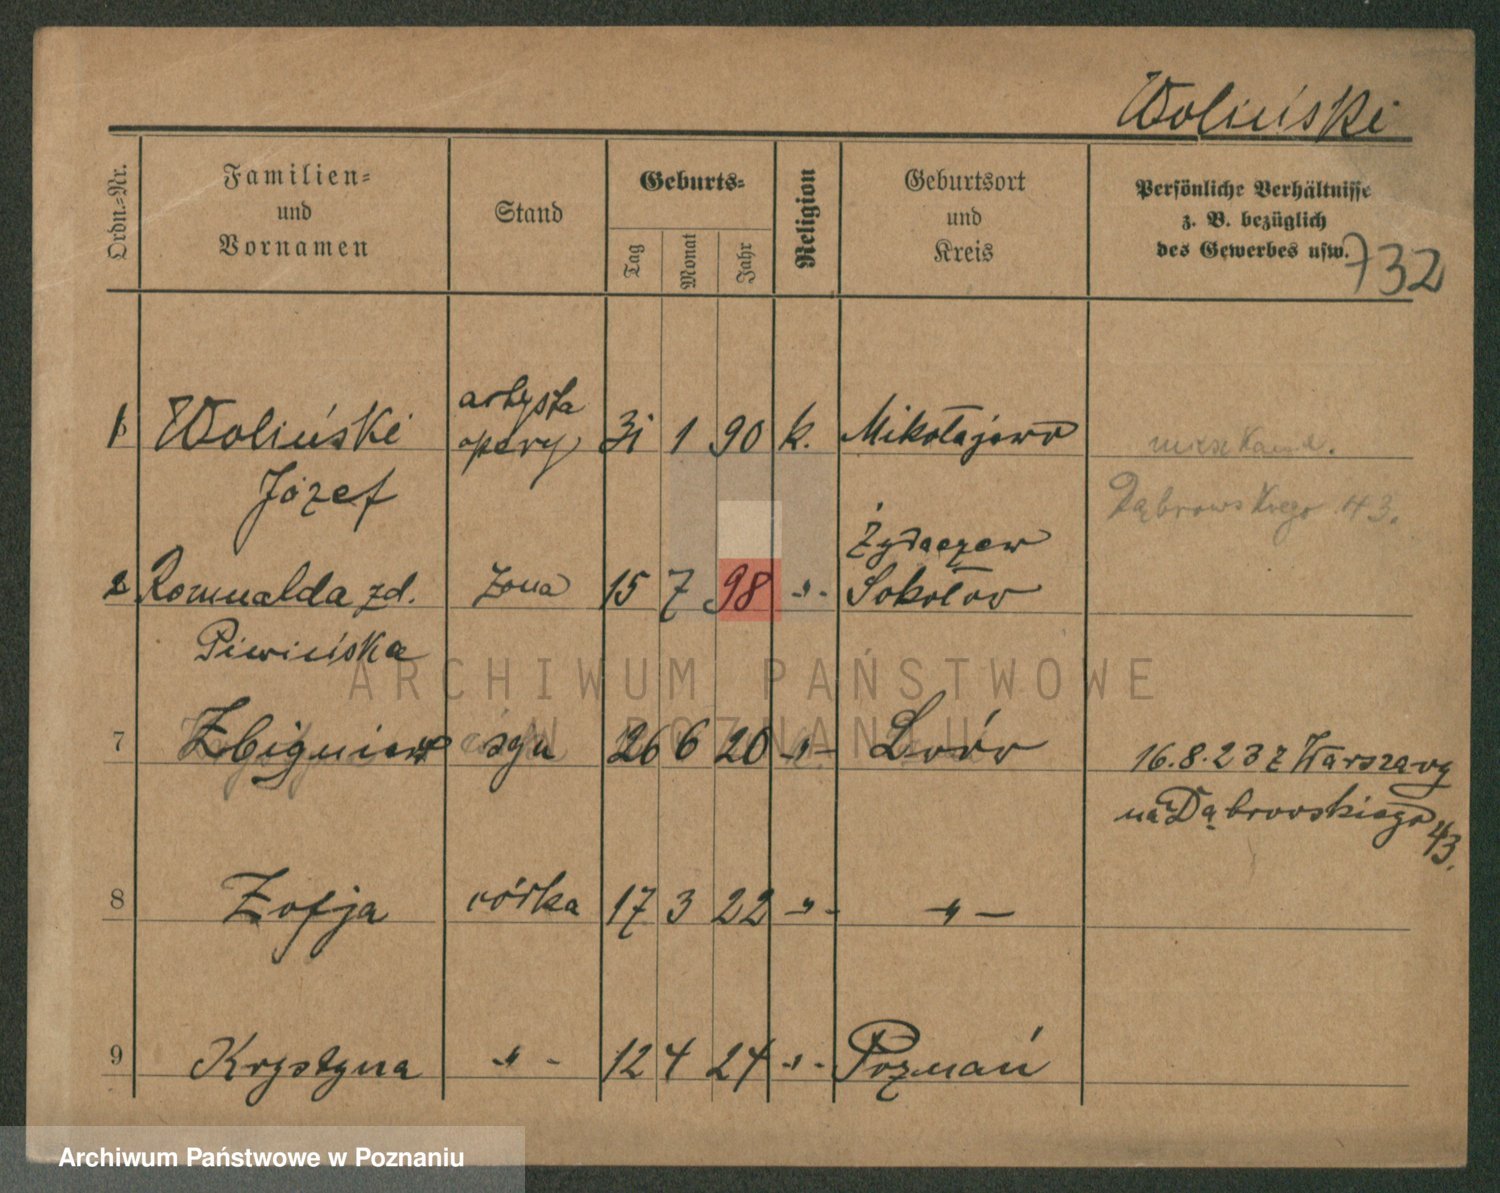 Woliński
Ordn.=Nr.
Familien=
und
Vornamen
Stand
Geburts=
Tag
Monat
Jahr
Religion
Geburtsort
und
Kreis
Persönliche Verhältnisse
z. B. bezüglich
des Gewerbes usw.
732
1 Woliński artysta opery 31 1 90 k. Mikołajowo
Józef
mieszkand.
Dąbrowskiego 43.
Żydaczew
2 Romualda zd. żona 15 7 98 -"- Sokołów
Piwińska
ARCHIWUM PAŃSTWOWE
W POZNANIU
7 Zbigniew syn 26 6 20 -"- Lwów
16.8.23 z Warszawy
na Dąbrowskiego 43.
8 Zofja córka 17 3 22 -"- -"-
9 Krystyna -"- 12 4 24 -"- Poznań
Archiwum Państwowe w Poznaniu